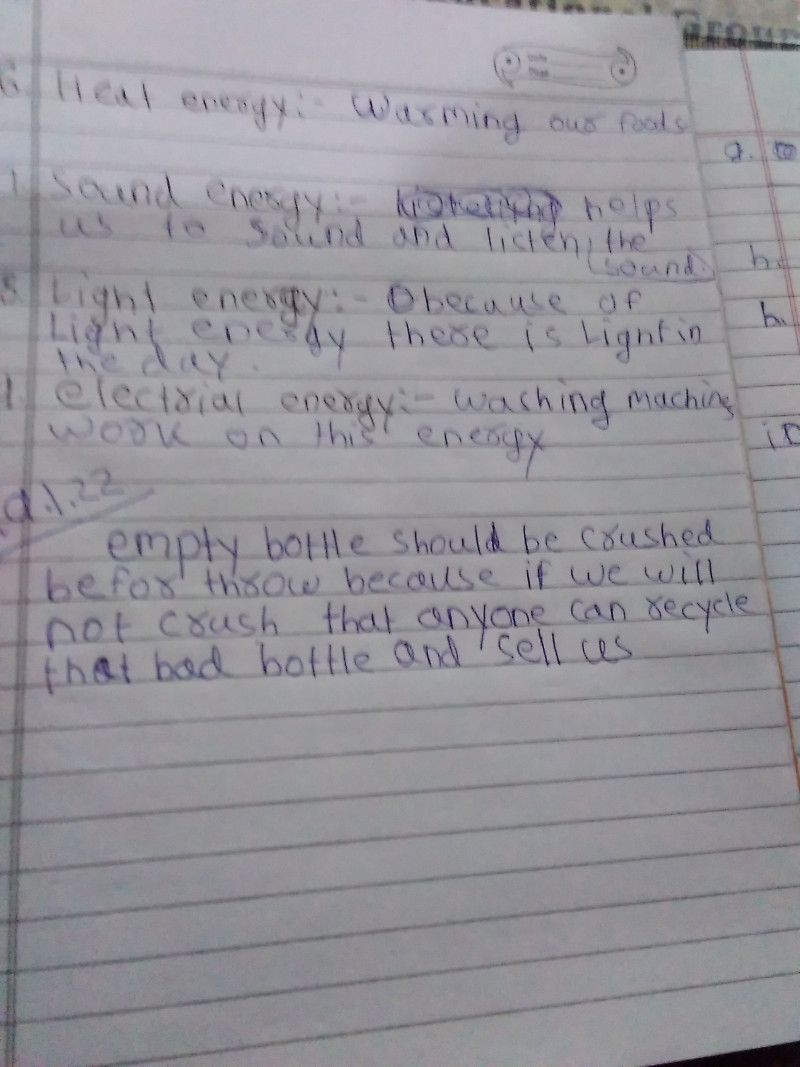 Group
6 Heat energy:- Warming our foods
Sound energy:- helps
us to sound and listen, the
(sound)
Light energy:- because of
Light energy there is Light in
the day.
electrial energy:- washing machine
work on this energy
Q.1.22
empty bottle should be crushed
befor throw because if we will
not crush that anyone can recycle
that bad bottle and sell us
g.
h.
h.